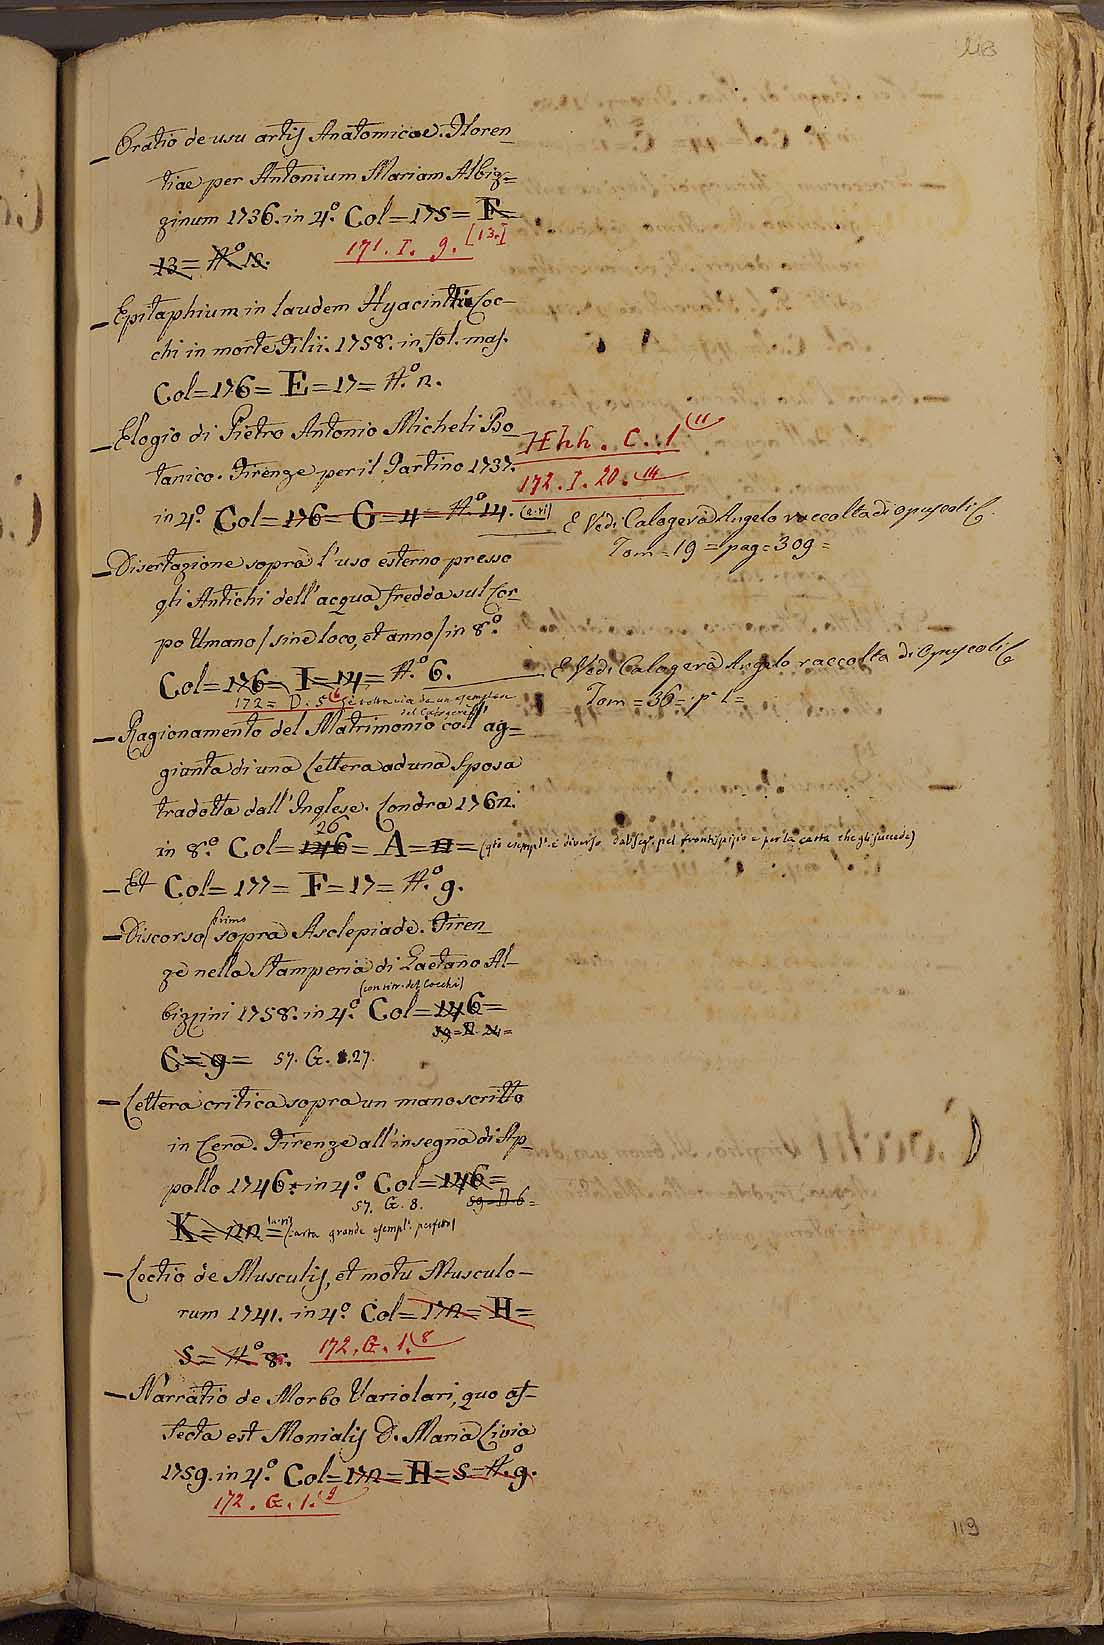 118
— Oratio de usu artis Anatomicae. Floren_
tiae per Antonium Mariam Albiz=
zinum 1736. in 4.° Col=175= F=
13= N.° 12.
171. I. 9. [13.]
— Epitaphium in laudem Hyacinthi Coc-
chi in morte Filii. 1758. in fol. mas.
Col=176= E=17= N.° 2.
— Elogio di Pietro Antonio Micheli Bo_
tanico. Firenze per il Tartino 1737.
Hhh. C. 1 (11
172. I. 20. 14
in 4.° Col=176= G=4= N.° 14.
E Vedi Calogerà Angelo raccolta di opuscoli &.
Tom=19=pag=309=
— Disertazione sopra l'uso esterno presso
gli Antichi dell'acqua fredda sul Cor_
po Umano/ sine loco, et anno/ in 8.°
Col=176= I=14= N.° 6.
E Vedi Calogerà Angelo raccolta di Opuscoli &
Tom=36=p.e 1=
172= D. 5 (6 è tolta via da un esemplare
del Calogerà
— Ragionamento del Matrimonio coll'ag=
giunta di una Lettera ad una Sposa
tradotta dall'Inglese. Londra 1762.
26
in 8.° Col=146= A=11= (q.to esempl.e è diverso dal seg.e pel frontispizio e per la carta che gli succede)
— Et Col=177= F=17= N.° 9.
— Discorso/ primo sopra Asclepiade. Firen_
ze nella Stamperia di Gaetano Al-
(con ritr. del Cocchi)
bizzini 1758. in 4.° Col=146=
C=9= 57. G. 27.
— Lettera critica sopra un manoscritto
in Cera. Firenze all'insegna di Ap_
pollo 1746. in 4.° Col=146=
57. G. 8. 59=D 6=
K=22= (carta grande esempl.e perfetto)
— Lectio de Musculis, et motu Musculo-
rum 1741. in 4.° Col=172= H=
5= N.° 8. 172. G. 1. 8
— Narratio de Morbo Variolari, quo af-
fecta est Monialis D. Maria Livia
1759. in 4.° Col=172= H=5= N.° 9.
172. G. 1. 9
119